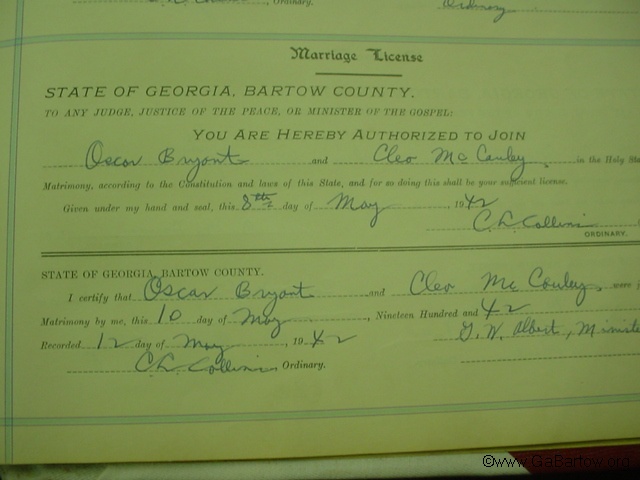 Ordinary.
Ordinary
Marriage License
STATE OF GEORGIA, BARTOW COUNTY.
TO ANY JUDGE, JUSTICE OF THE PEACE, OR MINISTER OF THE GOSPEL:
YOU ARE HEREBY AUTHORIZED TO JOIN
Oscar Bryant and Cleo McCauley in the Holy Sta
Matrimony, according to the Constitution and laws of this State, and for so doing this shall be your sufficient license.
Given under my hand and seal, this 8th day of May 1942
C. L. Collins
ORDINARY.
STATE OF GEORGIA, BARTOW COUNTY.
I certify that Oscar Bryant and Cleo McCouley, were j
Matrimony by me, this 10 day of May, Nineteen Hundred and 42
Recorded 12 day of May, 1942 G. W. Albert, Ministe
C. L. Collins, Ordinary.
©www.GaBartow.org